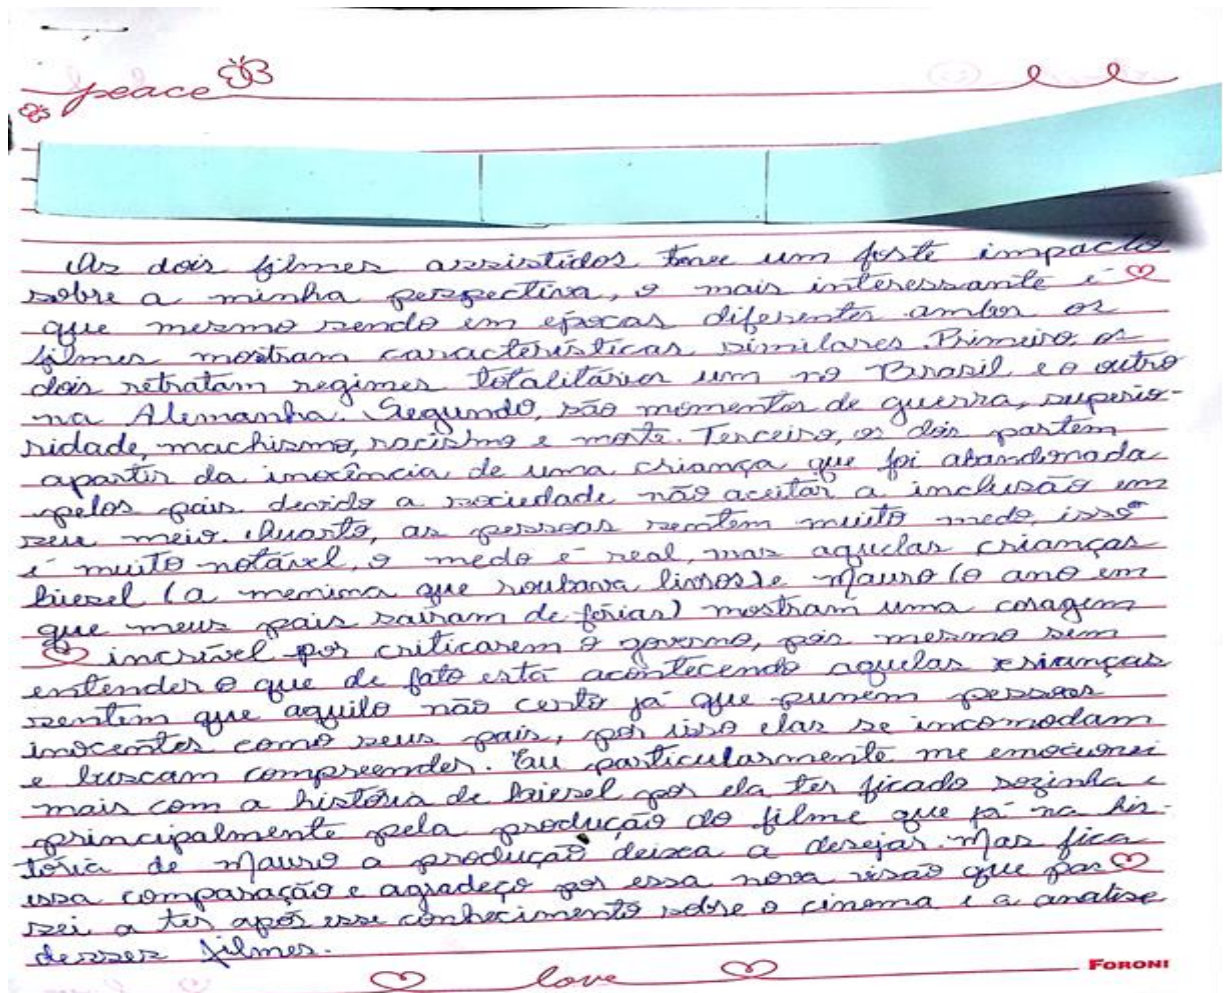 peace
Os dois filmes assistidos teve um forte impacto
sobre a minha perspectiva, o mais interessante é
que mesmo sendo em épocas diferentes ambos os
filmes mostram características similares. Primeiro os
dois retratam regimes totalitários um no Brasil e o outro
na Alemanha. Segundo, são momentos de guerra, superio-
ridade, machismo, racismo e morte. Terceiro, os dois partem
apartir da inocência de uma criança que foi abandonada
pelos pais devido a sociedade não aceitar a inclusão em
seu meio. Quarto, as pessoas sentem muito medo, isso
é muito notável, o medo é real, mas aquelas crianças
liesel (a menina que roubava livros) e Mauro (o ano em
que meus pais sairam de férias) mostram uma coragem
incrível por criticarem o governo, pois mesmo sem
entender o que de fato está acontecendo aquelas crianças
sentem que aquilo não certo já que punem pessoas
inocentes como seus pais, por isso elas se incomodam
e buscam compreender. Eu particularmente me emocionei
mais com a história de liesel por ela ter ficado sozinha e
principalmente pela produção do filme que já na his-
tória de Mauro a produção deixa a desejar. Mas fica
essa comparação e agradeço por essa nova visão que pas
sei a ter após esse conhecimento sobre o cinema e a analise
desses filmes.
love
FORONI